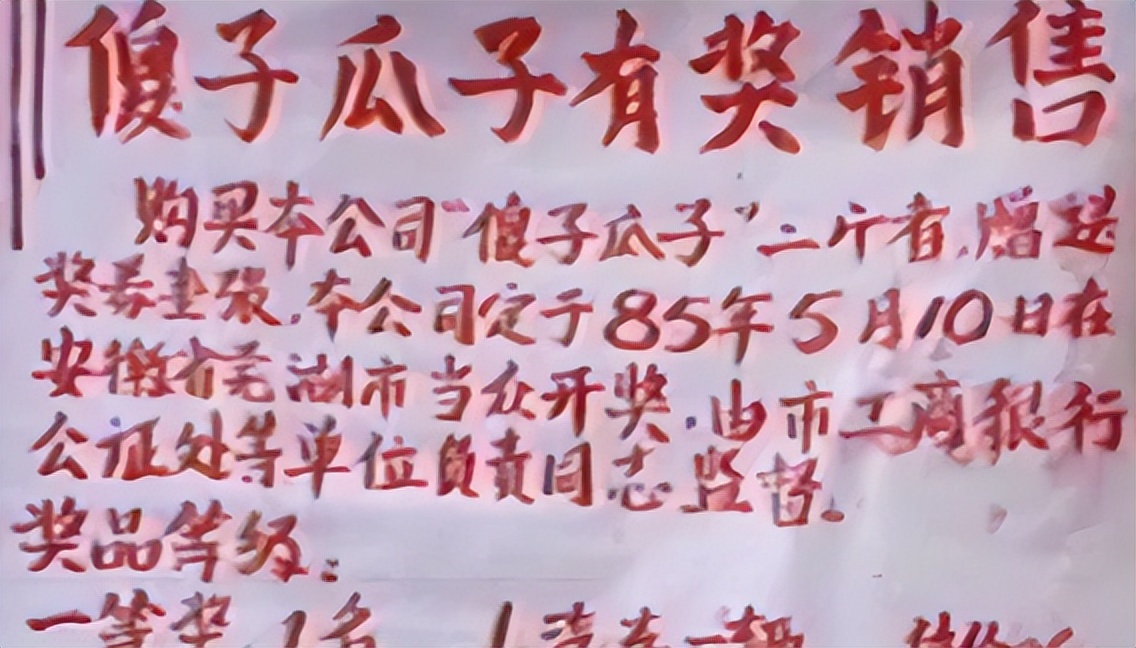 傻子瓜子有奖销售
购买本公司“傻子瓜子”二斤者,赠送
奖券壹张.本公司定于85年5月10日在
安徽省芜湖市当众开奖.由市工商银行
公证处等单位负责同志监督.
奖品等级:
一等奖 1名